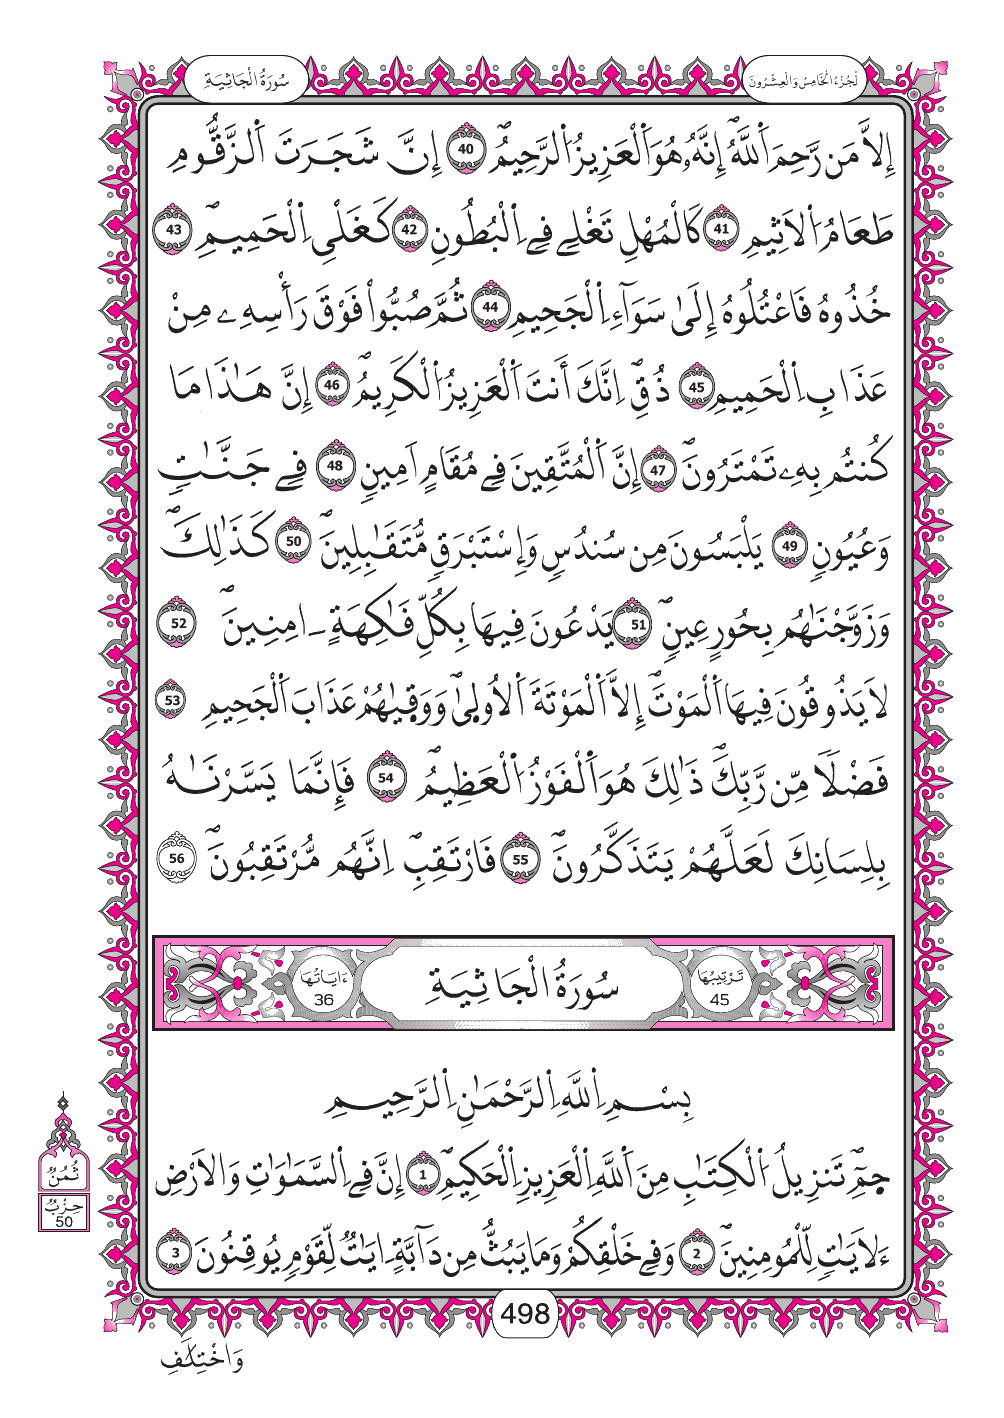 سُورَةُ الْجَاثِيَةِ
لْجُزْءُ الْخَامِسُ وَالْعِشْرُونَ
إِلاَّ مَن رَّحِمَ اَ۬للَّهُۖ إِنَّهُۥ هُوَ اَ۬لْعَزِيزُ اُ۬لرَّحِيمُۖ 40 إِنَّ شَجَرَتَ اَ۬لزَّقُّومِ
طَعَامُ اُ۬لَاثِيمِ 41 كَالْمُهْلِ تَغْلِے فِے اِ۬لْبُطُونِ 42 كَغَلْيِ اِ۬لْحَمِيمِۖ 43
خُذُوهُ فَاعْتُلُوهُ إِلَىٰ سَوَآءِ اِ۬لْجَحِيمِ 44 ثُمَّ صُبُّواْ فَوْقَ رَأْسِهِۦ مِنْ
عَذَابِ اِ۬لْحَمِيمِ 45 ذُقِۖ اِنَّكَ أَنتَ اَ۬لْعَزِيزُ اُ۬لْكَرِيمُۖ 46 إِنَّ هَٰذَا مَا
كُنتُم بِهِۦ تَمْتَرُونَۖ 47 إِنَّ اَ۬لْمُتَّقِينَ فِے مُقَامٍ اَمِينٖ 48 فِے جَنَّٰتٖ
وَعُيُونٖ 49 يَلْبَسُونَ مِن سُندُسٖ وَإِسْتَبْرَقٖ مُّتَقَٰبِلِينَۖ 50 كَذَٰلِكَۖ
وَزَوَّجْنَٰهُم بِحُورٍ عِينٖۖ 51 يَدْعُونَ فِيهَا بِكُلِّ فَٰكِهَةٍ ـ امِنِينَۖ 52
لَا يَذُوقُونَ فِيهَا اَ۬لْمَوْتَۖ إِلاَّ اَ۬لْمَوْتَةَ اَ۬لُاولَىٰۖ وَوَقٜىٰهُمْ عَذَابَ اَ۬لْجَحِيمِ 53
فَضْلٗا مِّن رَّبِّكَۖ ذَٰلِكَ هُوَ اَ۬لْفَوْزُ اُ۬لْعَظِيمُۖ 54 فَإِنَّمَا يَسَّرْنَٰهُ
بِلِسَانِكَ لَعَلَّهُمْ يَتَذَكَّرُونَۖ 55 فَارْتَقِبِۖ اِنَّهُم مُّرْتَقِبُونَۖ 56
تَرْتِيبُهَا 45
سُورَةُ الْجَاثِيَةِ
ءَايَاتُهَا 36
بِسْمِ اِ۬للَّهِ اِ۬لرَّحْمَٰنِ اِ۬لرَّحِيمِ
حٜمِٓۖ تَنزِيلُ اُ۬لْكِتَٰبِ مِنَ اَ۬للَّهِ اِ۬لْعَزِيزِ اِ۬لْحَكِيمِۖ 1 إِنَّ فِے اِ۬لسَّمَٰوَٰتِ وَالَارْضِ
ءَلَايَٰتٖ لِّلْمُومِنِينَۖ 2 وَفِے خَلْقِكُمْ وَمَا يَبُثُّ مِن دَآبَّةٍ ايَٰتٞ لِّقَوْمٖ يُوقِنُونَ 3
ثُمُنُ
حِزْبُ
50
498
وَاخْتِلَٰفِ